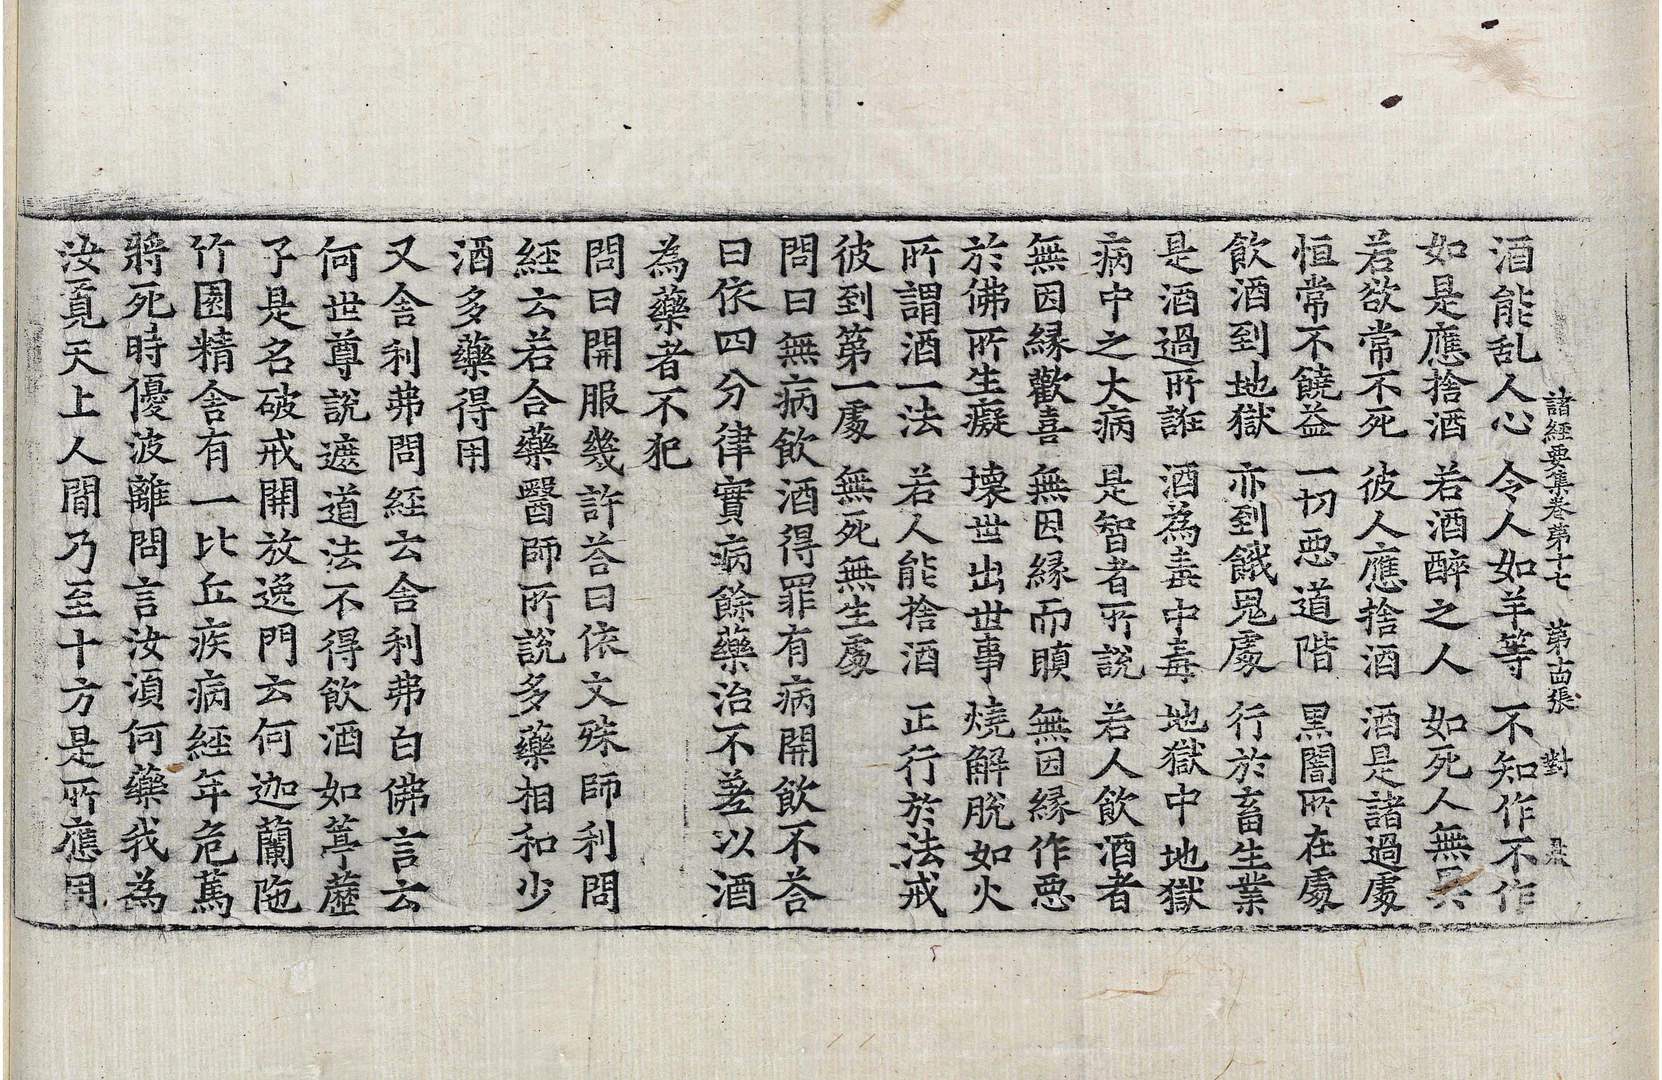 諸經要集卷第十七　第十四張　對
酒能乱人心　令人如羊等　不知作不作
如是應捨酒　若酒醉之人　如死人無異
若欲常不死　彼人應捨酒　酒是諸過處
恒常不饒益　一切惡道階　黑闇所在處
飲酒到地獄　亦到餓鬼處　行於畜生業
是酒過所誑　酒為毒中毒　地獄中地獄
病中之大病　是智者所說　若人飲酒者
無因緣歡喜　無因緣而瞋　無因緣作惡
於佛所生癡　壞世出世事　燒解脫如火
所謂酒一法　若人能捨酒　正行於法戒
彼到第一處　無死無生處
問曰無病飲酒得罪有病開飲不荅
曰依四分律實病餘藥治不差以酒
為藥者不犯
問曰開服幾許荅曰依文殊師利問
經云若合藥醫師所說多藥相和少
酒多藥得用
又舍利弗問經云舍利弗白佛言云
何世尊說遮道法不得飲酒如葶藶
子是名破戒開放逸門云何迦蘭陁
竹園精舍有一比丘疾病經年危篤
將死時優波離問言汝湏何藥我為
汝覔天上人間乃至十方是所應用